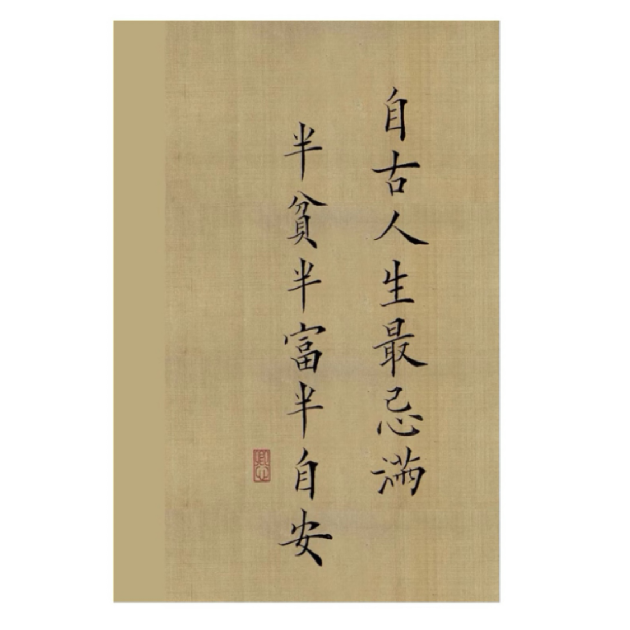 自古人生最忌满
半貧半富半自安